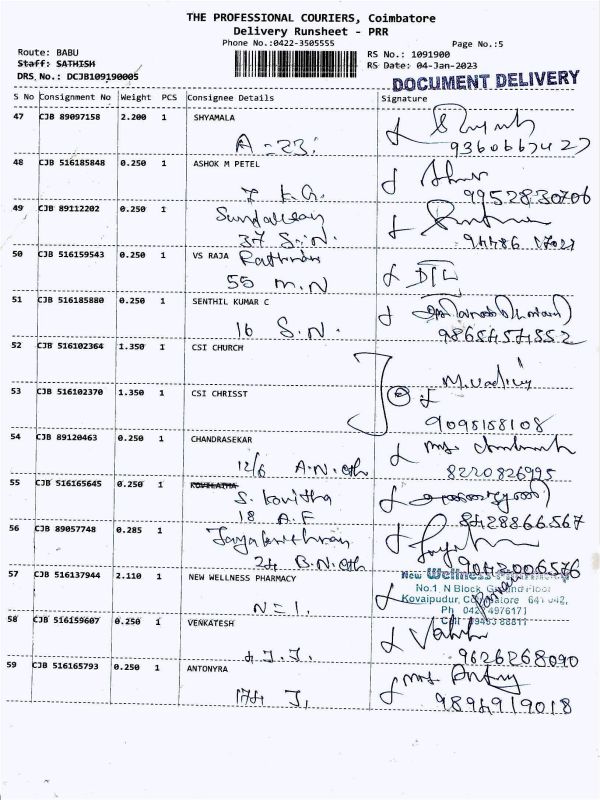 THE PROFESSIONAL COURIERS, Coimbatore
Delivery Runsheet - PRR
Phone No.:0422-3505555
Page No.:5
Route: BABU
RS No.: 1091900
Staff: SATHISH
RS Date: 04-Jan-2023
DRS No.: DCJB109190005
DOCUMENT DELIVERY
S No Consignment No Weight PCS Consignee Details Signature
47 CJB 89097158 2.200 1 SHYAMALA
A - 23.
48 CJB 516185848 0.250 1 ASHOK M PETEL
7 K.G.
9952830706
49 CJB 89112202 0.250 1
37 S.N.
50 CJB 516159543 0.250 1 VS RAJA
55 M.N
51 CJB 516185880 0.250 1 SENTHIL KUMAR C
16 S.N.
52 CJB 516102364 1.350 1 CSI CHURCH
53 CJB 516102370 1.350 1 CSI CHRISST
9095158108
54 CJB 89120463 0.250 1 CHANDRASEKAR
12/6 A.N.
8220826995
55 CJB 516165645 0.250 1 KOVILATHA
S. Kavitha
18 A.F
8428866567
56 CJB 89057748 0.285 1
24 B.N.
9042006576
57 CJB 516137944 2.110 1 NEW WELLNESS PHARMACY
N = 1.
New Wellness Pharmacy
No.1 N Block, Ground Floor
Kovaipudur, Coimbatore 641 042,
58 CJB 516159607 0.250 1 VENKATESH
9626268090
59 CJB 516165793 0.250 1 ANTONYRA
174 J.
9894919018